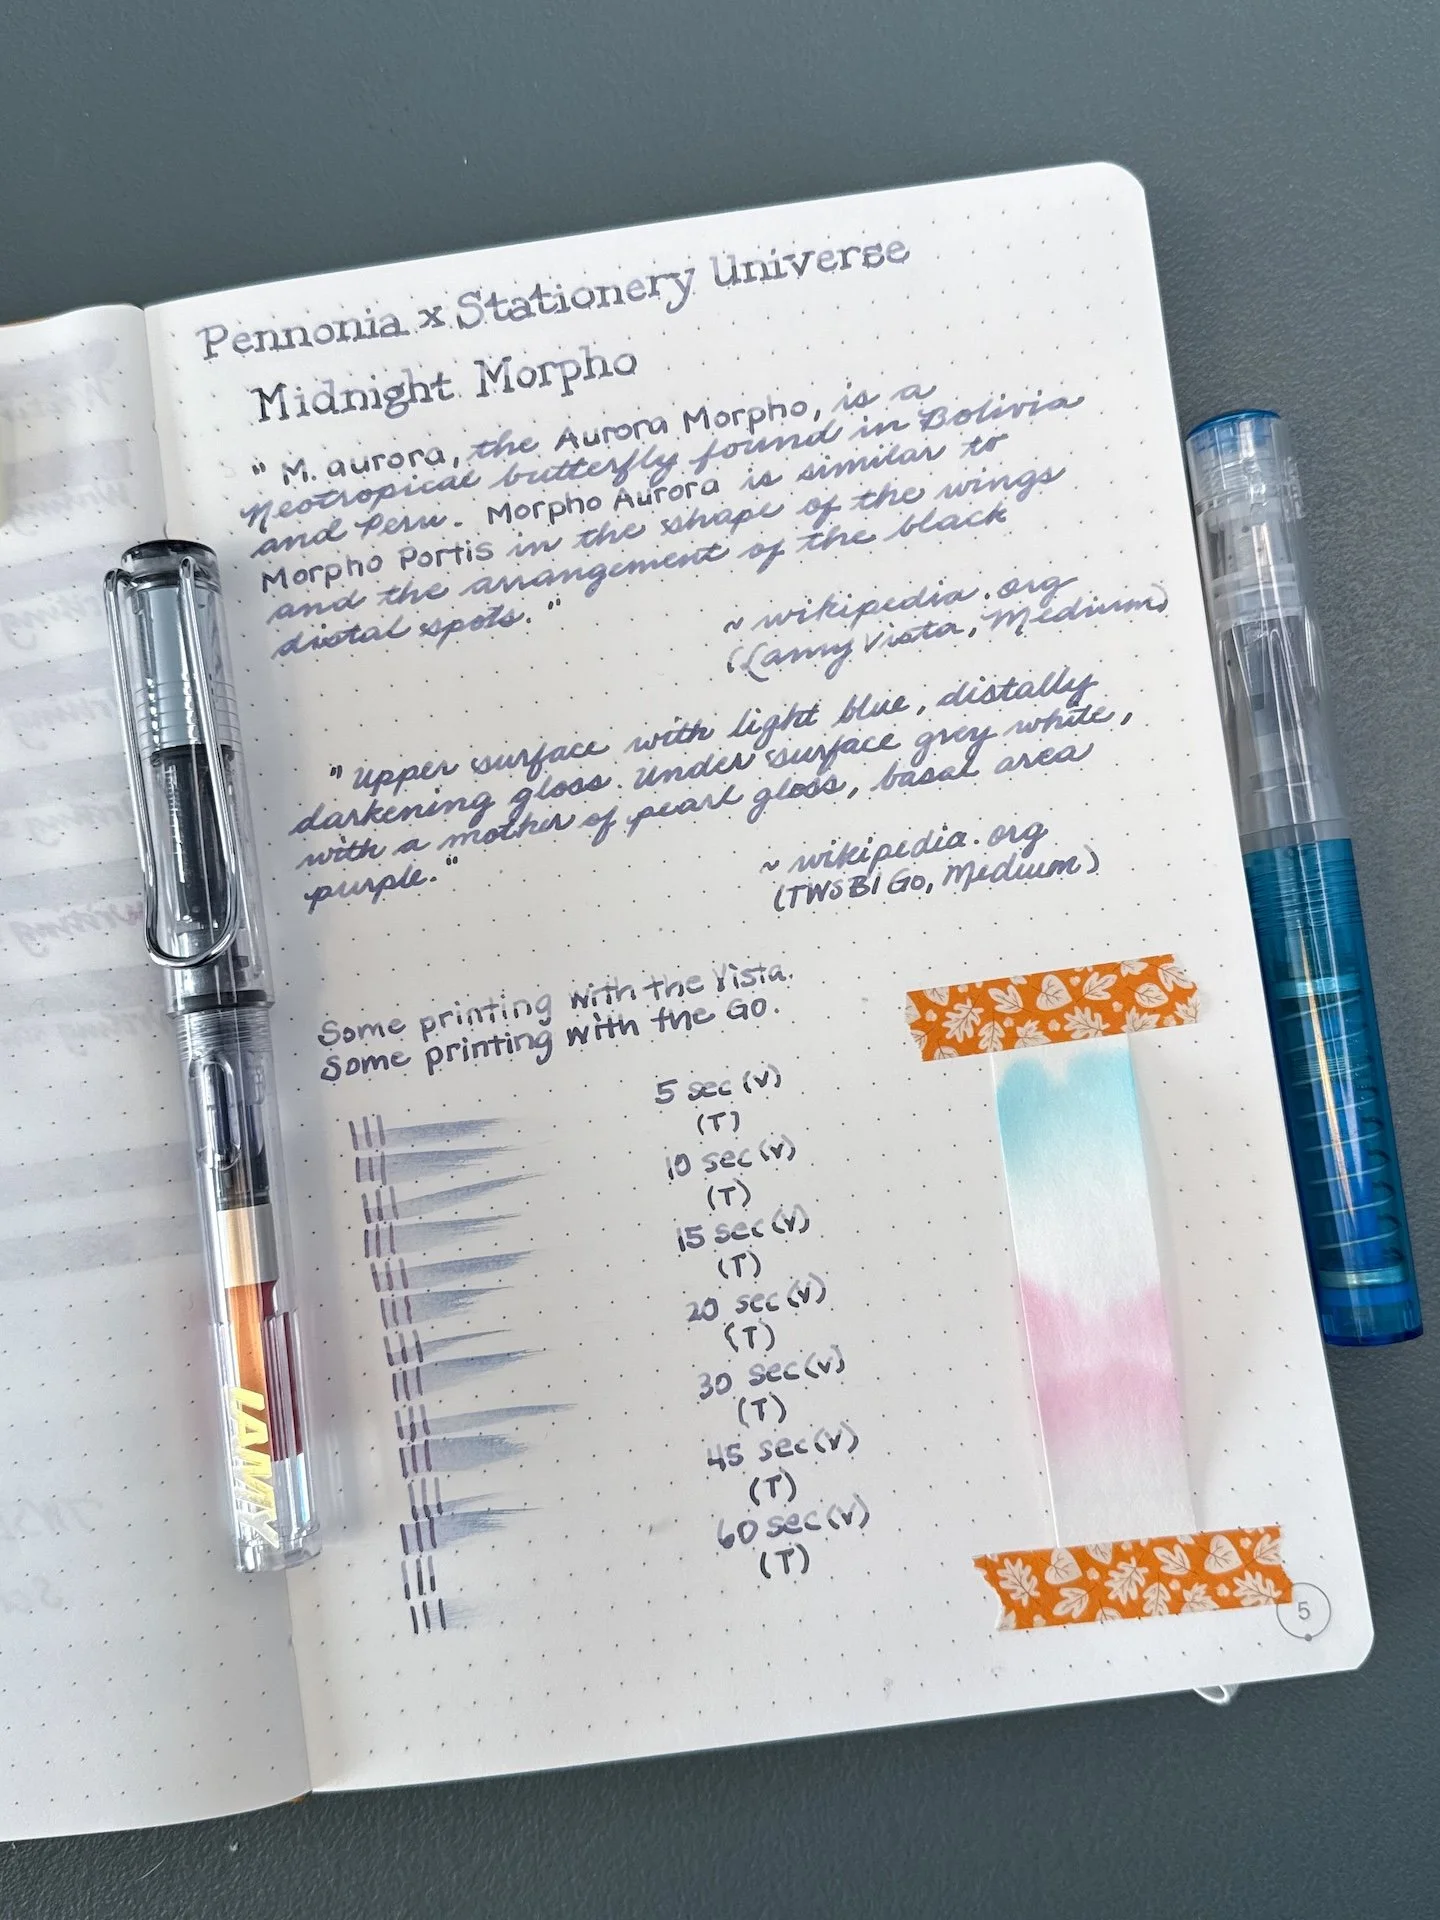 Pennonia x Stationery Universe
Midnight Morpho
"M. aurora, the Aurora Morpho, is a
Neotropical butterfly found in Bolivia
and Peru. Morpho Aurora is similar to
Morpho Portis in the shape of the wings
and the arrangement of the black
distal spots."
~ wikipedia.org
(Lamy Vista, Medium)
"Upper surface with light blue, distally
darkening gloss. Under surface grey white,
with a mother of pearl gloss, basal area
purple."
~ wikipedia.org
(TWSBI Go, Medium)
Some printing with the Vista.
Some printing with the Go.
5 sec (V)
(T)
10 sec (V)
(T)
15 sec (V)
(T)
20 sec (V)
(T)
30 sec (V)
(T)
45 sec (V)
(T)
60 sec (V)
(T)
LAMY
5